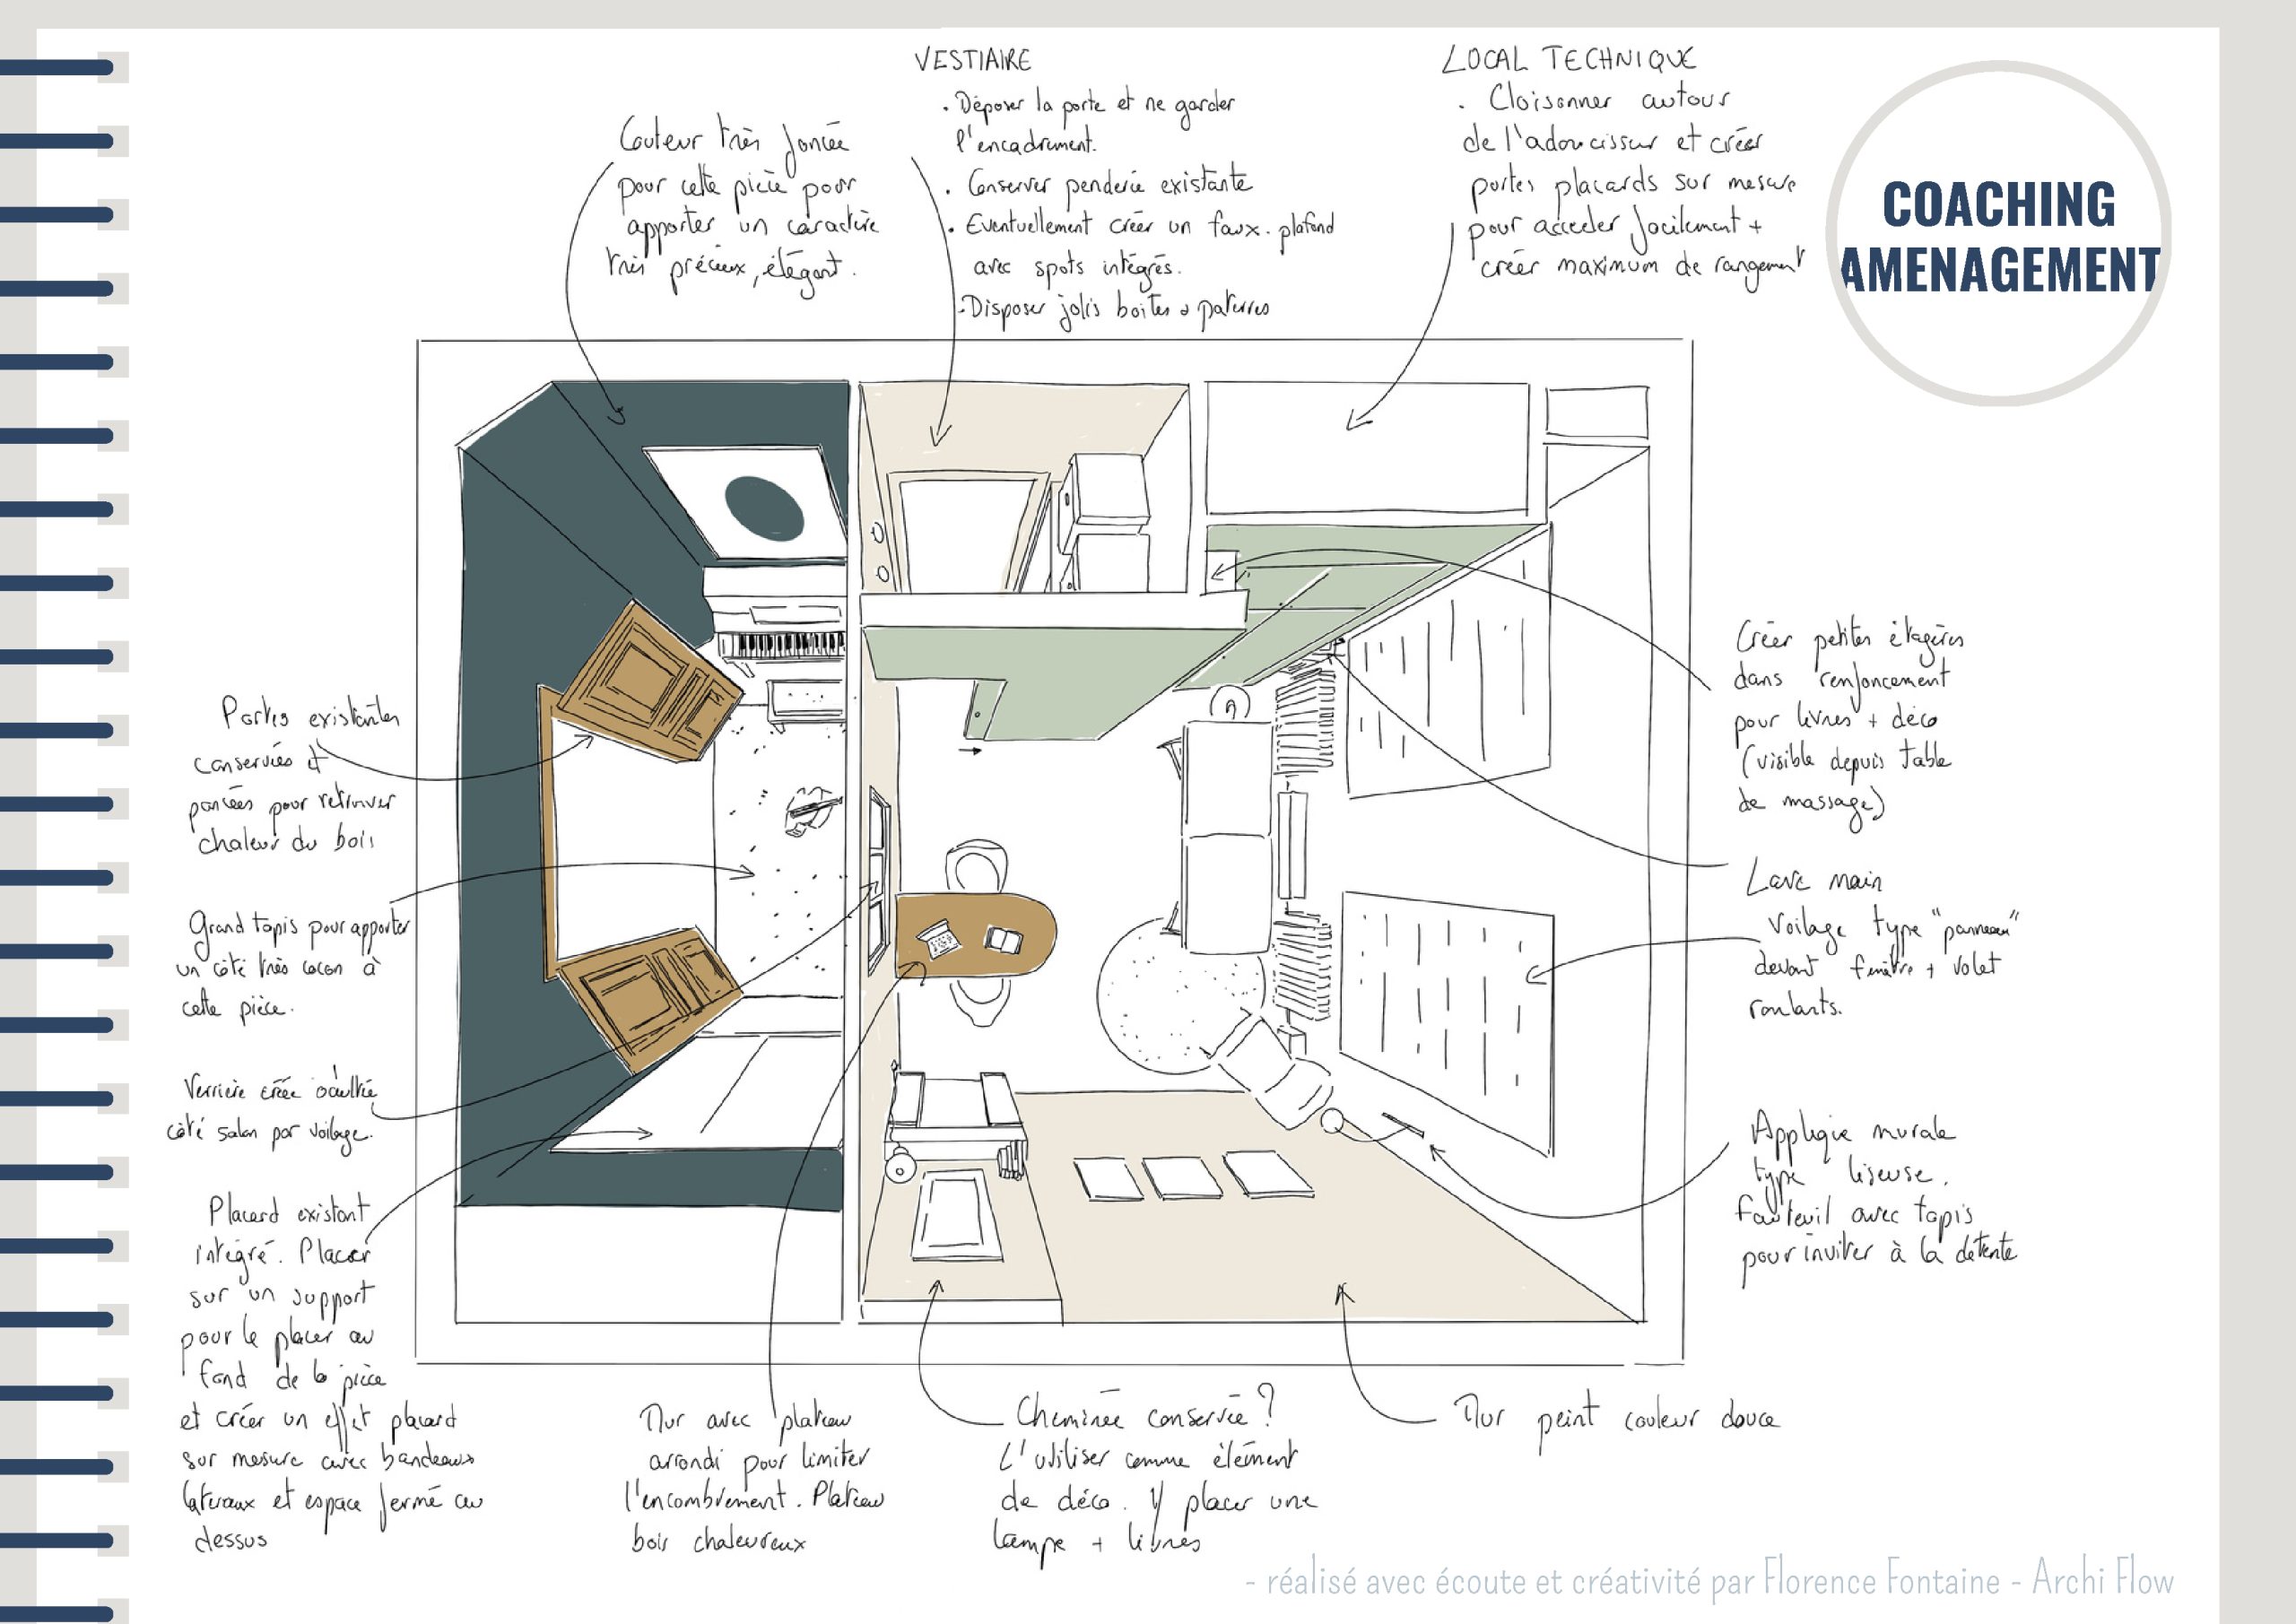 VESTIAIRE
. Déposer la porte et ne garder
l'encadrement.
. Conserver penderie existante
. Eventuellement créer un faux-plafond
avec spots intégrés.
- Disposer jolis boites + paterres
LOCAL TECHNIQUE
. Cloisonner autour
de l'adoucisseur et créer
portes placards sur mesure
pour acceder facilement +
créer maximum de rangement
COACHING
AMENAGEMENT
Couleur très foncée
pour cette pièce pour
apporter un caractère
très précieux, élégant.
Portes existantes
conservées et
poncées pour retrouver
chaleur du bois
Grand tapis pour apporter
un côté très cocon à
cette pièce.
Verrière créée occultée
côté salon par voilage.
Placard existant
intégré. Placer
sur un support
pour le placer au
fond de la pièce
et créer un effet placard
sur mesure avec bandeaux
latéraux et espace fermé au
dessus
Mur avec plateau
arrondi pour limiter
l'encombrement. Plateau
bois chaleureux
Cheminée conservée ?
L'utiliser comme élément
de déco. Y placer une
lampe + livres
Mur peint couleur douce
Créer petites étagères
dans renfoncement
pour livres + déco
(visible depuis table
de massage)
Lave main
Voilage type "panneau"
devant fenêtre + volet
roulants.
Applique murale
type liseuse.
fauteuil avec tapis
pour inviter à la détente
- réalisé avec écoute et créativité par Florence Fontaine - Archi Flow